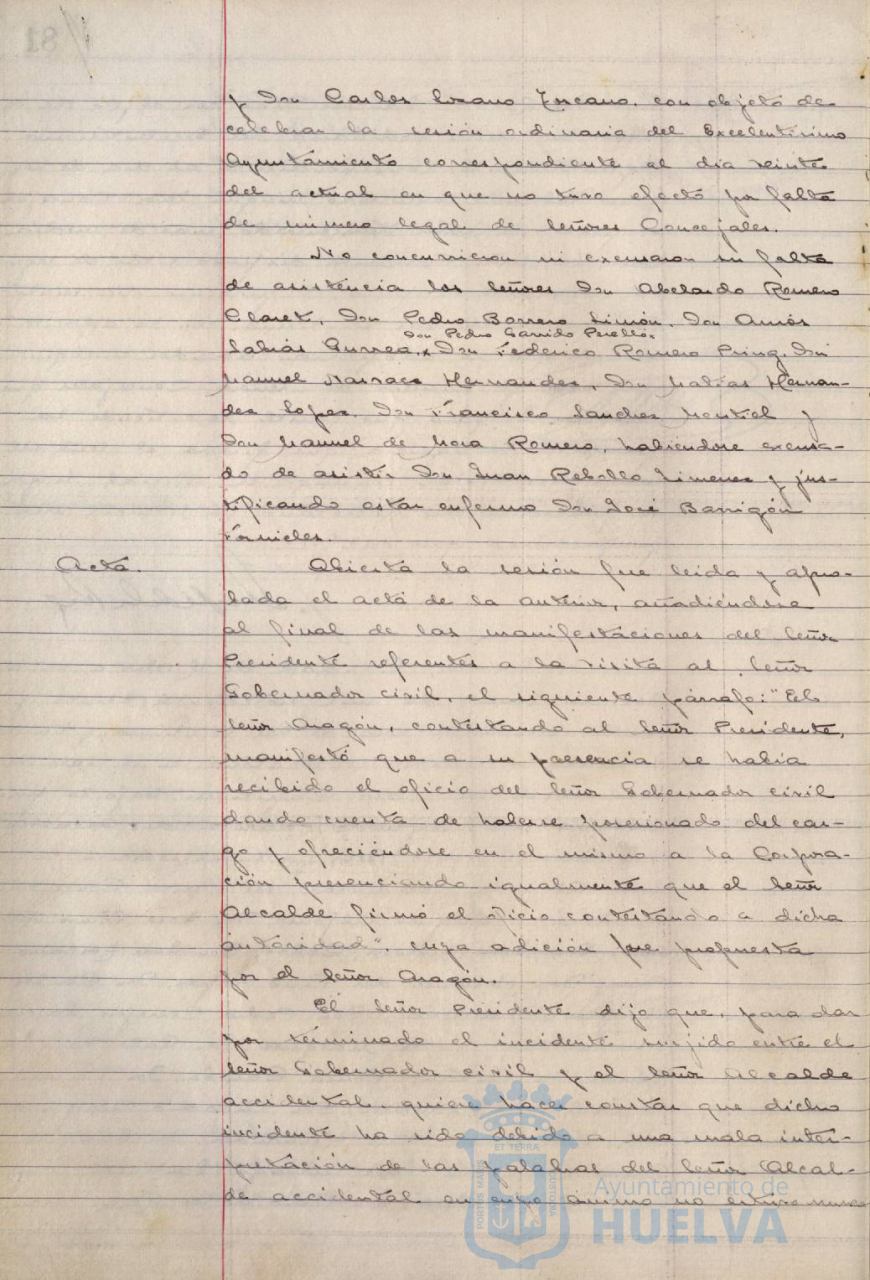 y Don Carlos Lozano Toscano, con objeto de
celebrar la sesión ordinaria del Excelentísimo
Ayuntamiento correspondiente al día veinte
del actual en que no tuvo efecto por falta
de número legal de Señores Concejales.
No concurrieron ni excusaron su falta
de asistencia los Señores Don Abelardo Romero
Claret, Don Pedro Borrero Limón, Don Amós
Don Pedro Garrido Perelló,
Sabrás Gurrea, x Don Federico Romero Pring, Don
Manuel Narváez Hernandez, Don Matías Hernan-
dez Lopez, Don Francisco Sanchez Montiel y
Don Manuel de Mora Romero, habiéndose excusa-
do de asistir Don Juan Rebollo Jimenez y jus-
tificando estar enfermo Don José Barrigón
Fornieles.
Acta. Abierta la sesión fue leida y apro-
bada el acta de la anterior, añadiéndose
al final de las manifestaciones del Señor
Presidente referentes a la visita al Señor
Gobernador civil, el siguiente párrafo: "El
Señor Aragón, contestando al Señor Presidente,
manifestó que a su presencia se había
recibido el oficio del Señor Gobernador civil
dando cuenta de haberse posesionado del car-
go y ofreciéndose en el mismo a la Corpora-
ción presenciando igualmente que el Señor
Alcalde firmó el oficio contestando a dicha
autoridad", cuya adición fue propuesta
por el Señor Aragón.
El Señor Presidente dijo que, para dar
por terminado el incidente surjido entre el
Señor Gobernador civil y el Señor Alcalde
accidental, quiere hacer constar que dicho
incidente ha sido debido a una mala inter-
pretación de las palabras del Señor Alcal-
de accidental en cuyo ánimo no estuvo nunca
Ayuntamiento de
HUELVA